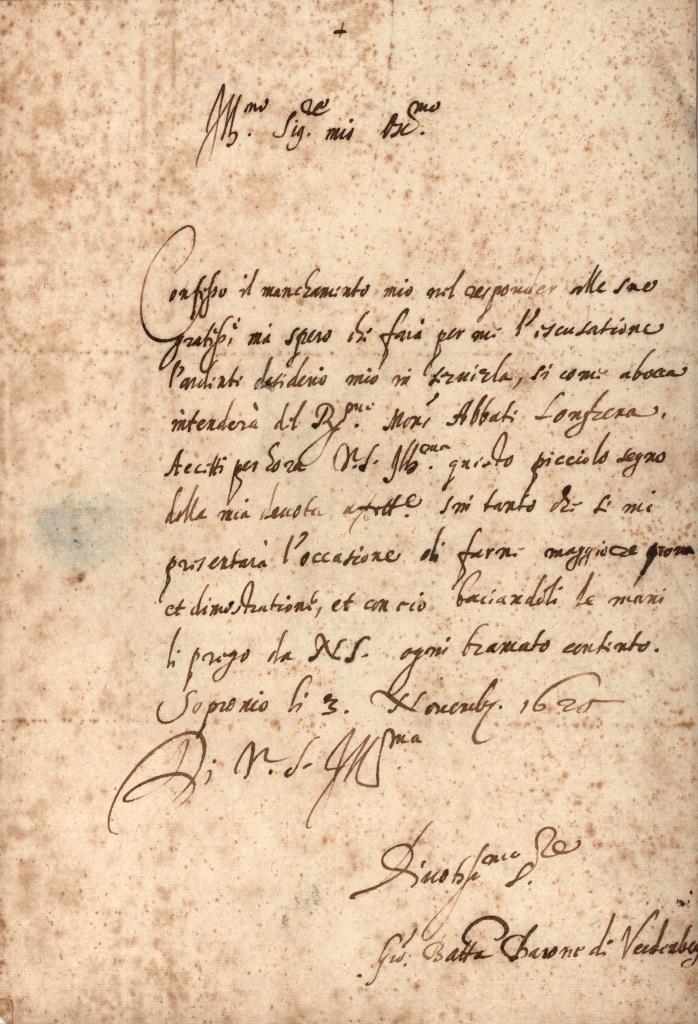 +
Ill.mo Sig.re mio Oss.mo
Confesso il manchamento mio nel responder alle sue
gratiss.e ma spero che farà per me l'escusatione
l'ardente desiderio mio in servirla, si come abocca
intenderà del R.mo Mons.r Abbate
Accetti per hora V.S. Ill.ma questo picciolo segno
della mia devota sin tanto che se mi
presentarà l'occasione di farne maggiore prova
et dimostratione, et con ciò baciandoli le mani
li prego da N.S. ogni bramato contento.
Sopronio li 3. Novemb. 1625
Di V.S. Ill.ma
Divotiss.mo S.re
Gio. Batta Barone di Verdenberg